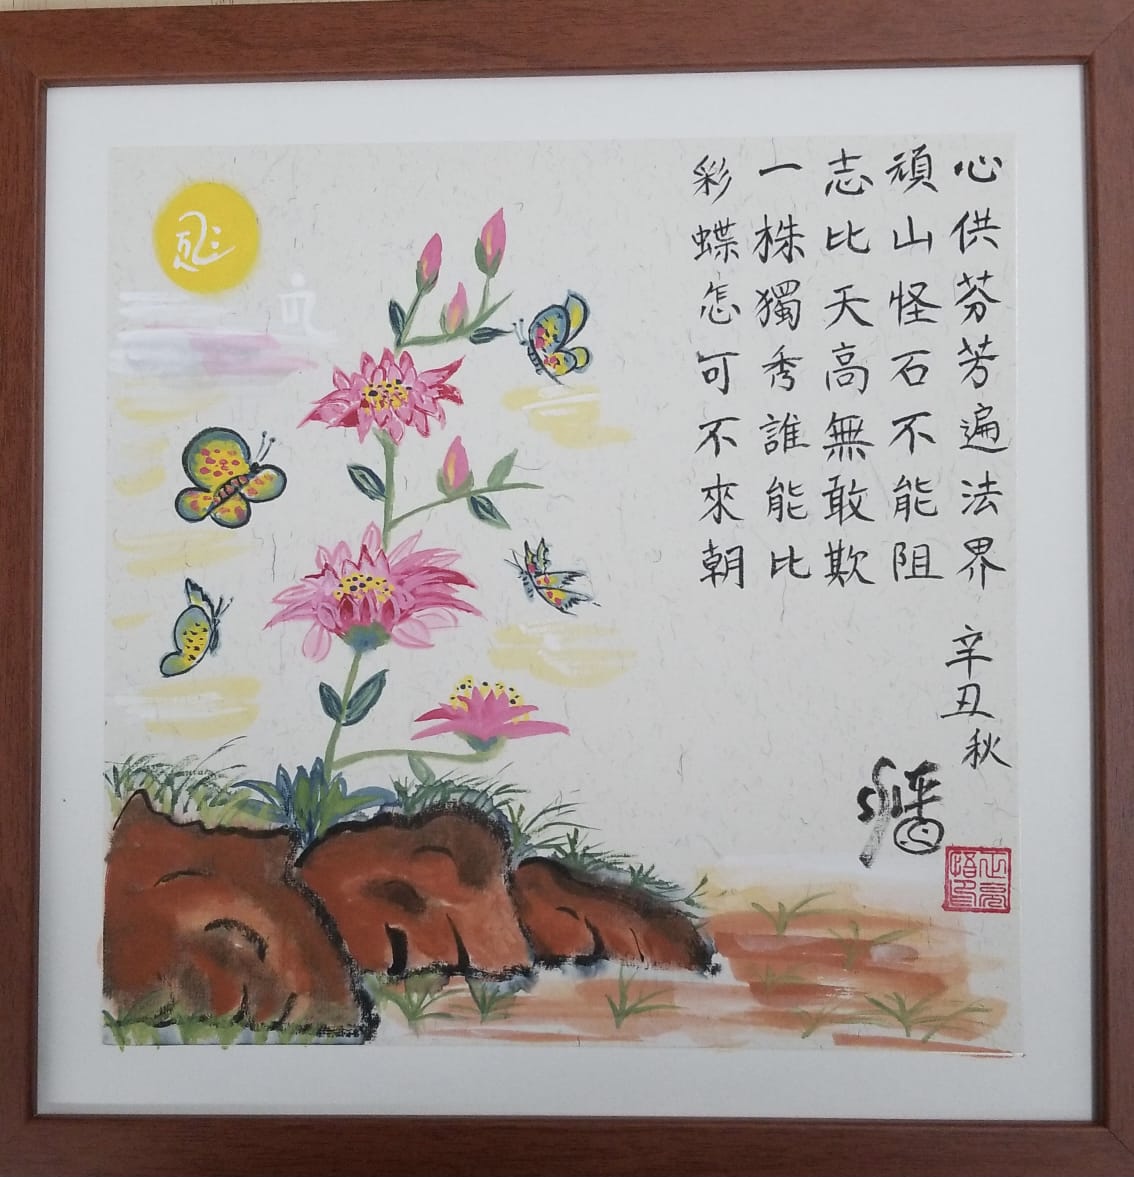 心供芬芳遍法界
頑山怪石不能阻
志比天高無敢欺
一株獨秀誰能比
彩蝶怎可不來朝
辛丑秋